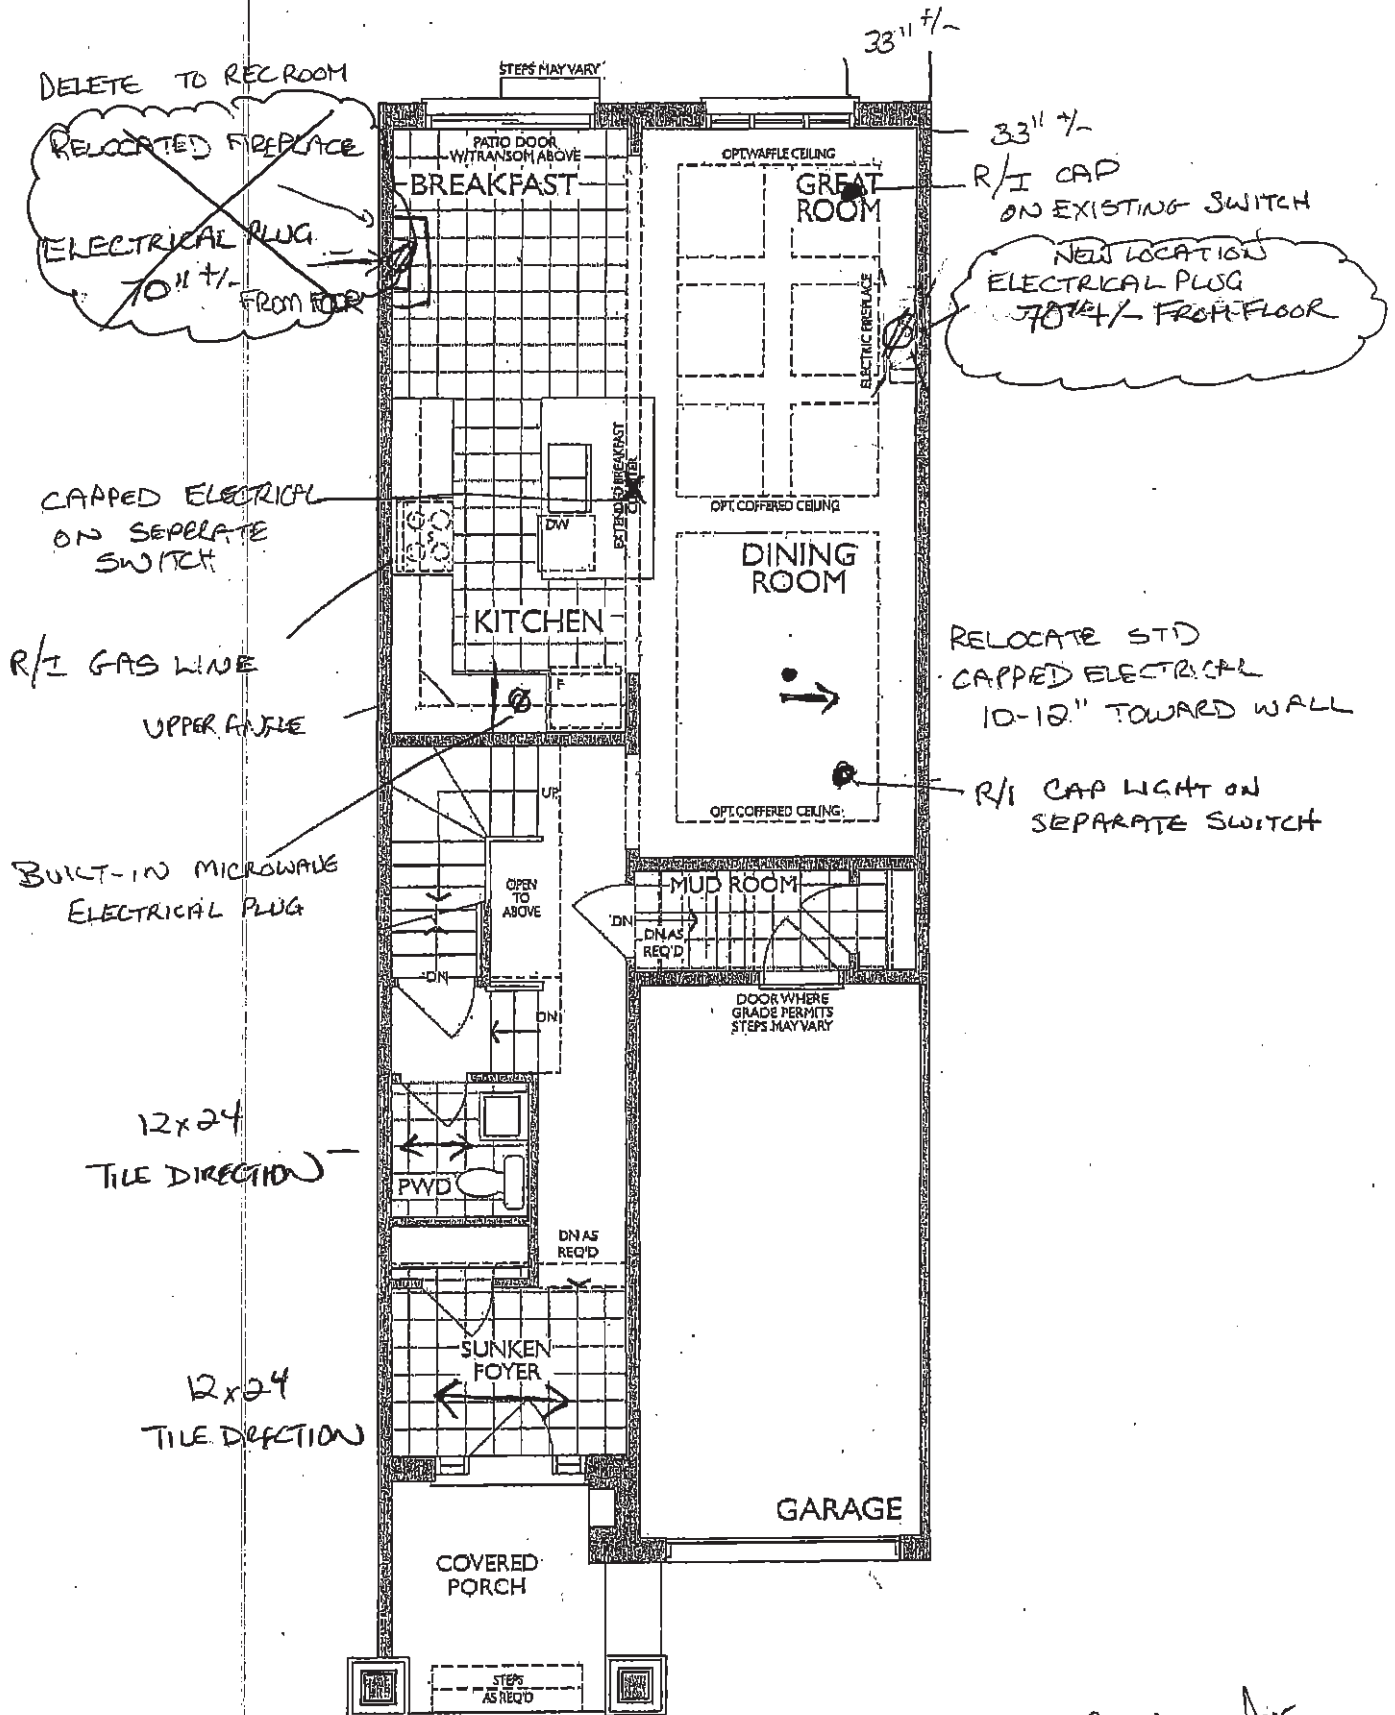 33" +/-
DELETE TO REC ROOM
RELOCATED FIREPLACE
ELECTRICAL PLUG
70" +/-
FROM FLOOR
STEPS MAY VARY
PATIO DOOR
W/TRANSOM ABOVE
BREAKFAST
OPT.WAFFLE CEILING
GREAT
ROOM
33" +/-
R/I CAP
ON EXISTING SWITCH
NEW LOCATION
ELECTRICAL PLUG
70" +/- FROM FLOOR
ELECTRIC FIREPLACE
CAPPED ELECTRICAL
ON SEPERATE
SWITCH
EXTENDED BREAKFAST
COUNTER
DW
S
OPT. COFFERED CEILING
DINING
ROOM
KITCHEN
R/I GAS LINE
UPPER ANGLE
F
RELOCATE STD
CAPPED ELECTRICAL
10-12" TOWARD WALL
R/I CAP LIGHT ON
SEPARATE SWITCH
OPT. COFFERED CEILING
BUILT-IN MICROWAVE
ELECTRICAL PLUG
UP
OPEN
TO
ABOVE
MUD ROOM
DN
DN AS
REQ'D
DN
DN
DOOR WHERE
GRADE PERMITS
STEPS MAY VARY
12x24
TILE DIRECTION
PWD
DN AS
REQ'D
SUNKEN
FOYER
12x24
TILE DIRECTION
GARAGE
COVERED
PORCH
STEPS
AS REQ'D